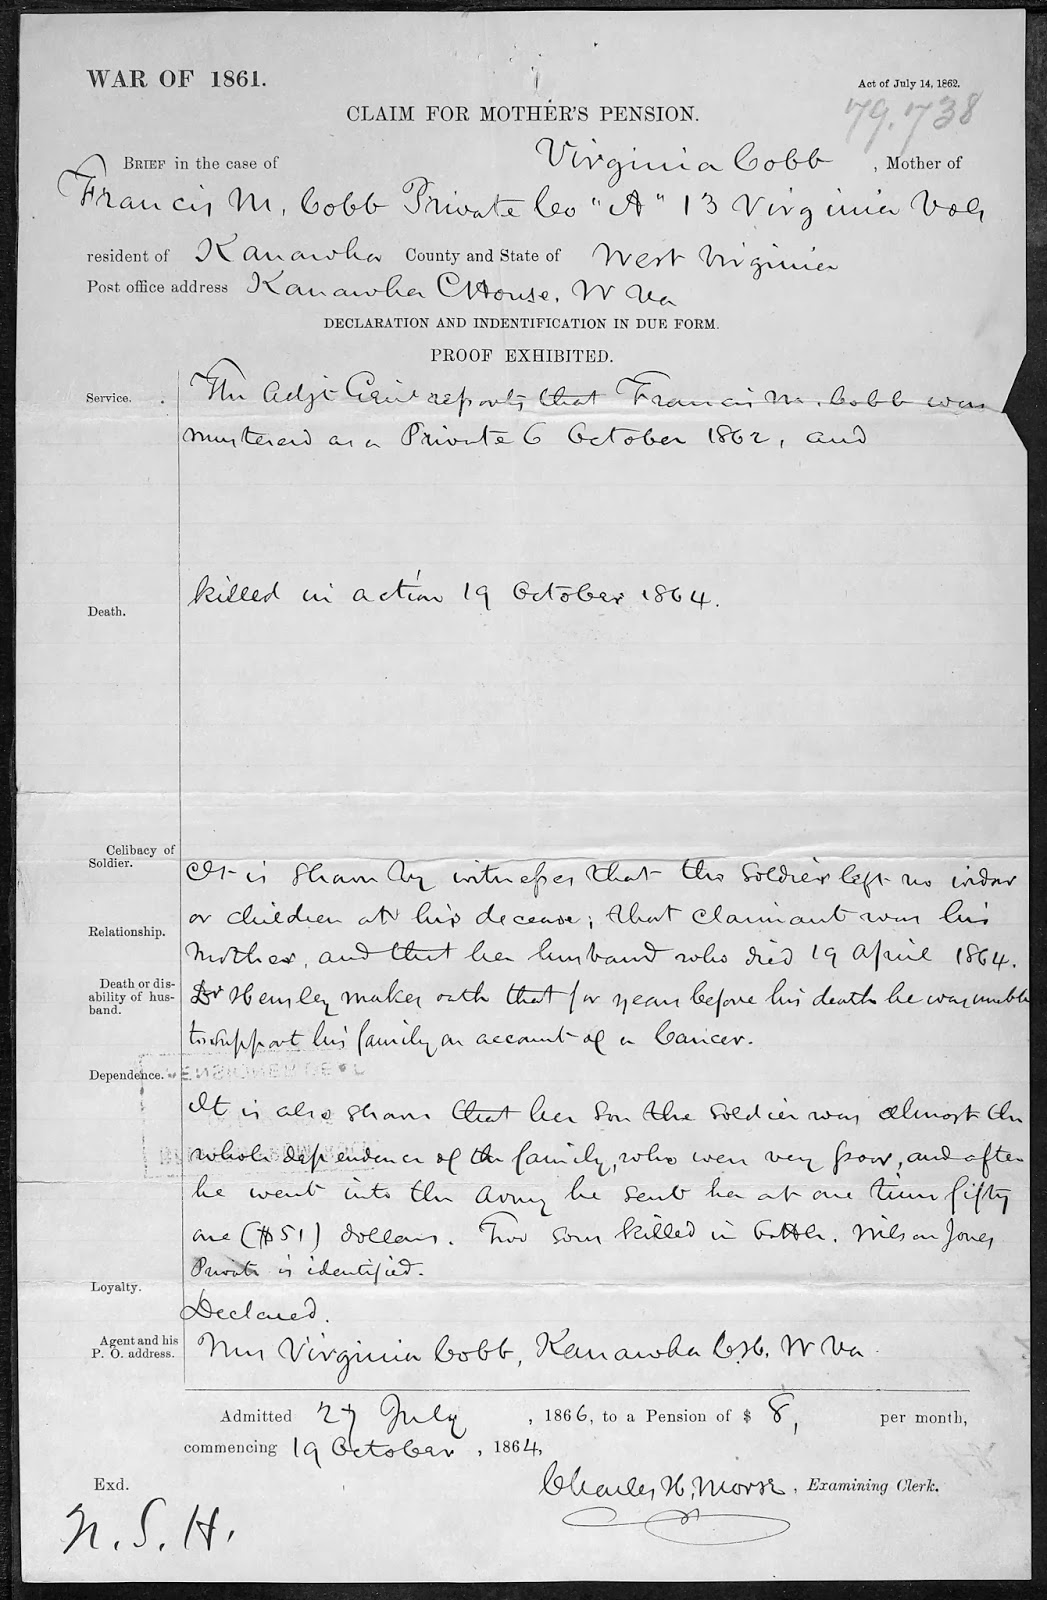 WAR OF 1861.
Act of July 14, 1862.
79.738
CLAIM FOR MOTHER'S PENSION.
BRIEF in the case of Virginia Cobb, Mother of
Francis M. Cobb Private Co "A" 13 Virginia Vols
resident of Kanawha County and State of West Virginia
Post office address Kanawha CHouse, W Va
DECLARATION AND INDENTIFICATION IN DUE FORM.
PROOF EXHIBITED.
Service. The Adjt Genl reports that Francis M. Cobb was
mustered as a Private 6 October 1862, and
Death. killed in action 19 October 1864.
Celibacy of
Soldier.
It is shown by witnesses that the soldier left no widow
or children at his decease; that claimant was his
Relationship.
mother, and that her husband who died 19 April 1864.
Death or dis-
ability of hus-
band.
Dr Hensley makes oath that for years before his death he was unable
to support his family on account of a Cancer.
Dependence.
PENSIONER
It is also shown that her son the soldier was almost the
whole dependence of the family, who were very poor, and after
he went into the Army he sent her at one time fifty
one ($51) dollars. Two sons killed in battle. Wilson Jones
Private is identified.
Loyalty.
Declared.
Agent and his
P. O. address.
Mrs Virginia Cobb, Kanawha C.H. W Va
Admitted 27 July, 1866, to a Pension of $ 8, per month,
commencing 19 October, 1864,
Charles H. Morse, Examining Clerk.
Exd.
N. S. H.